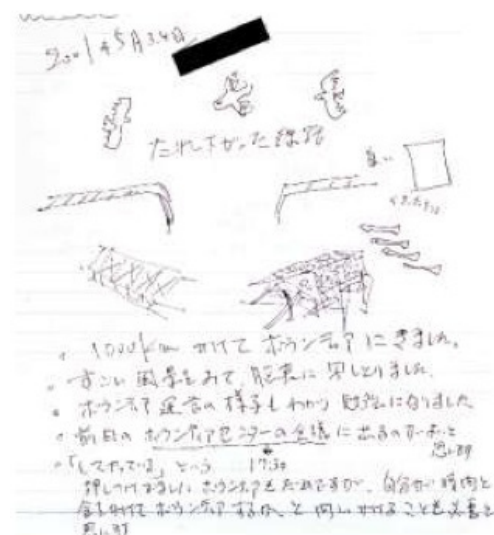 2011年5月3.4日
たれ下がった線路
臭い
・1000km かけて ボランティアにきました。
・すごい風景をみて、脳裏に写しとりました。
・ボランティア運営の様子もわかり 勉強になりました
・前日のボランティアセンターの会議に出るのがよいと
思います
17:30
・「してやっている」という
押しつけがましい ボランティアも だめですが、自分が 時間と
金をかけて ボランティアするか、と問いかけることも必要と
思います